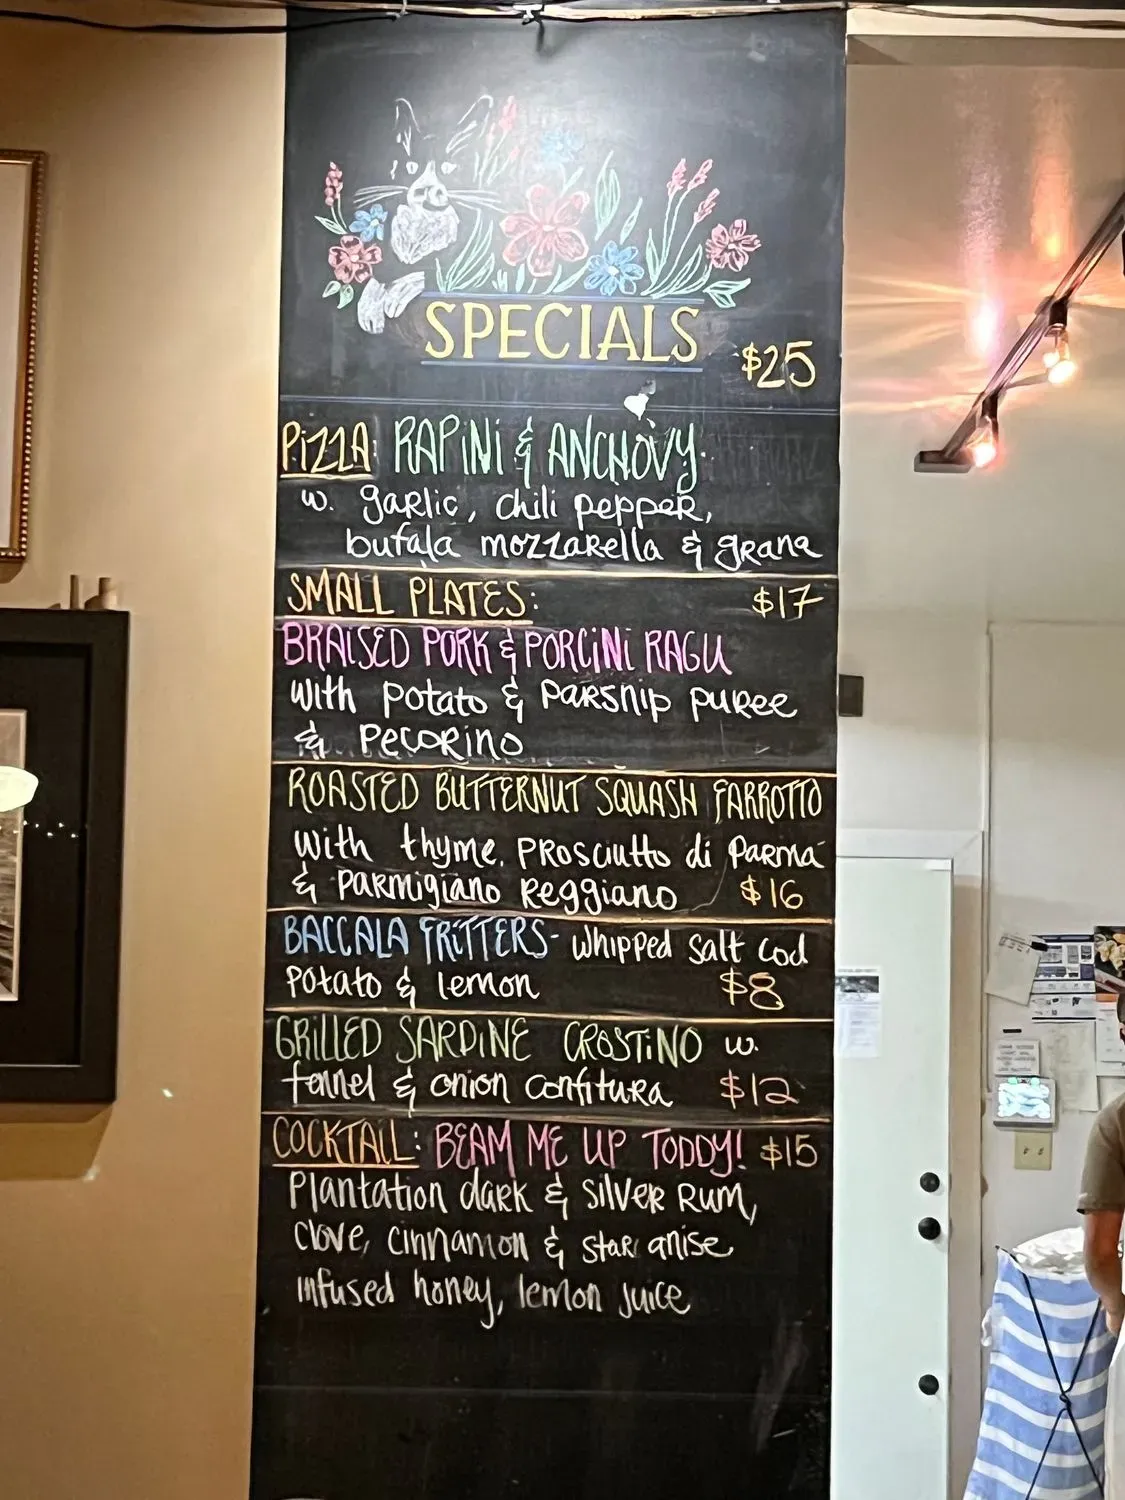 SPECIALS
$25
PIZZA: RAPINI & ANCHOVY
w. garlic, chili pepper,
bufala mozzarella & grana
SMALL PLATES: $17
BRAISED PORK & PORCINI RAGU
with potato & parsnip puree
& pecorino
ROASTED BUTTERNUT SQUASH FARROTTO
with thyme, prosciutto di parma
& parmigiano reggiano $16
BACCALA FRITTERS- whipped salt cod
potato & lemon $8
GRILLED SARDINE CROSTINO w.
fennel & onion confitura $12
COCKTAIL: BEAM ME UP TODDY! $15
Plantation dark & silver rum,
clove, cinnamon & star anise
infused honey, lemon juice